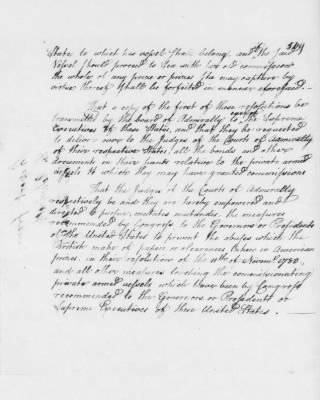 State to which his vessel shall belong, and if the said
Vessel should proceed to Sea with her old commission
the whole of any prize or prizes she may capture by
virtue thereof shall be forfeited in manner aforesaid.
That a copy of the first of these resolutions be
transmitted by the board of Admiralty to the Supreme
Executives of these States, and that they be requested
to deliver over to the Judges of the Courts of Admiralty
of their respective States, all the bonds and other
documents in their hands relative to the private armed
vessels to whom they may have granted commissions
That the Judges of the Courts of Admiralty
respectively be and they are hereby empowered and
directed to pursue, mutatis mutandis, the measures
recommended by Congress to the Governors or Presidents
of the United States to prevent the abuses which the
British make of papers or clearances taken in American
prizes, in their resolution of the 11th of Novemr. 1780,
and all other measures touching the commissioning
private armed vessels which have been by Congress
recommended to the Governors or Presidents or
Supreme Executives of these United States